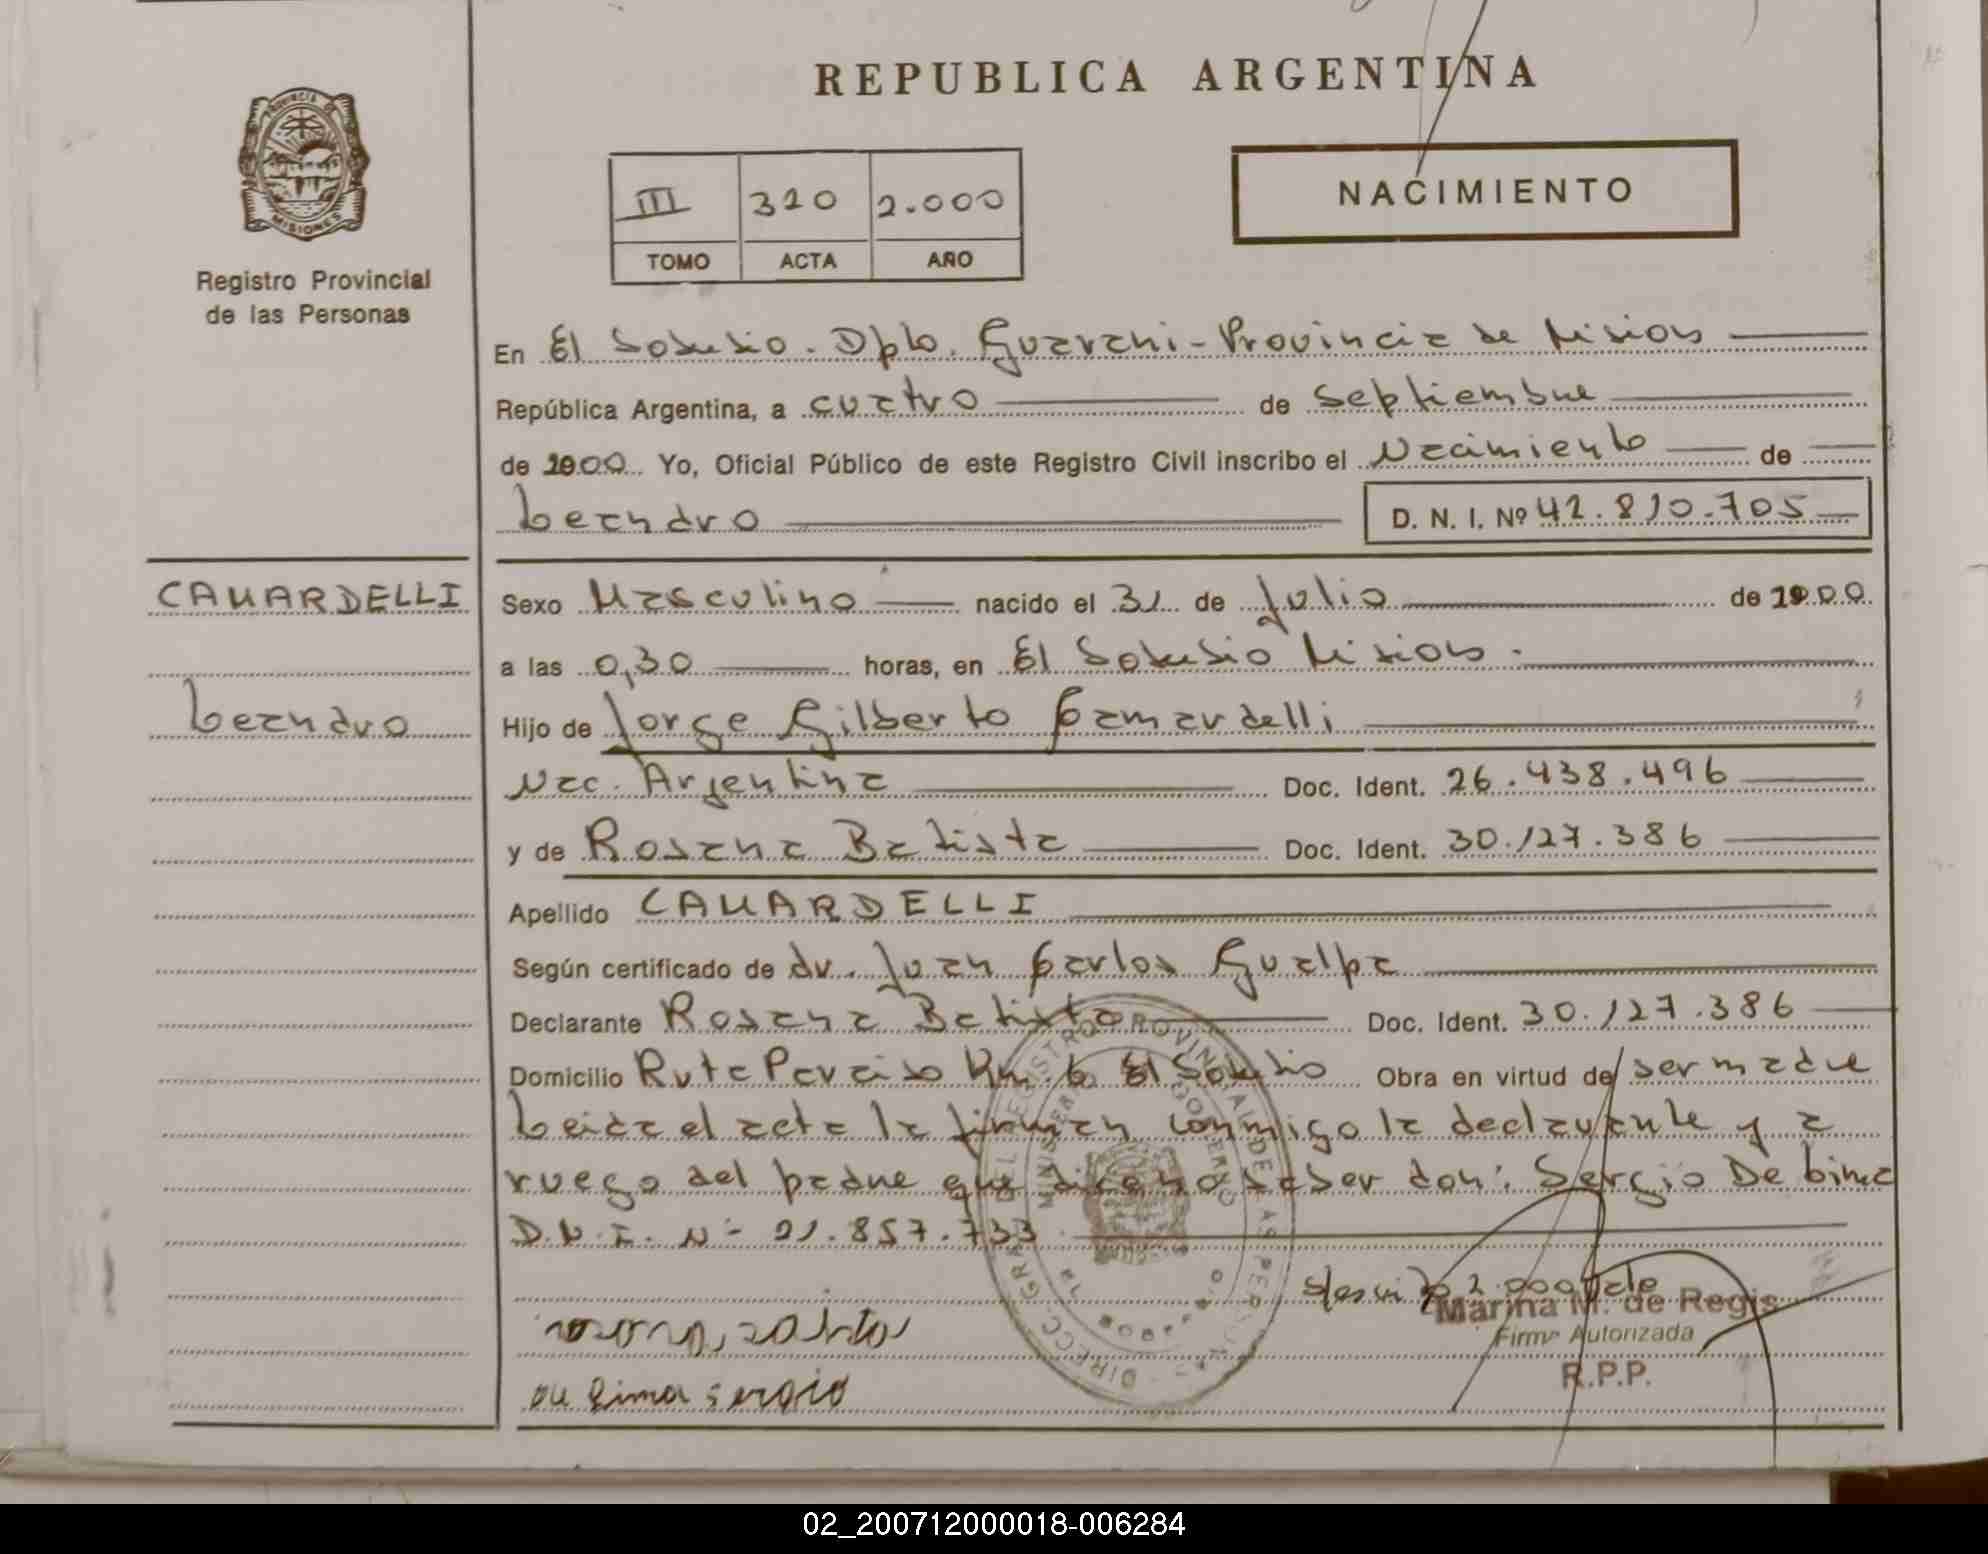 REPUBLICA ARGENTINA
PROVINCIA DE
MISIONES
Registro Provincial
de las Personas
III 320 2.000
TOMO ACTA AÑO
NACIMIENTO
En El Soberbio. Dpto. Guarani - Provincia de Misiones
República Argentina, a cuatro de septiembre
de 2000 Yo, Oficial Público de este Registro Civil inscribo el Nacimiento de
Leandro D. N. I. Nº 42.810.705
CAMARDELLI
Leandro
Sexo Masculino nacido el 31 de Julio de 2000
a las 0,30 horas, en El Soberbio Misiones.
Hijo de Jorge Gilberto Camardelli
Nac. Argentina Doc. Ident. 26.438.496
y de Rosana Batista Doc. Ident. 30.127.386
Apellido CAMARDELLI
Según certificado de dr. Juan Carlos Gualpa
Declarante Rosana Batista Doc. Ident. 30.127.386
Domicilio Ruta Paraiso Km. 6 El Soberbio Obra en virtud de ser madre
Leida el acta la firman conmigo la declarante y a
ruego del padre que dice no saber don: Sergio De Lima
D.N.I. Nº 21.857.733
Marina M. de Regis
Firma Autorizada
R.P.P.
de lima sergio
02_200712000018-006284